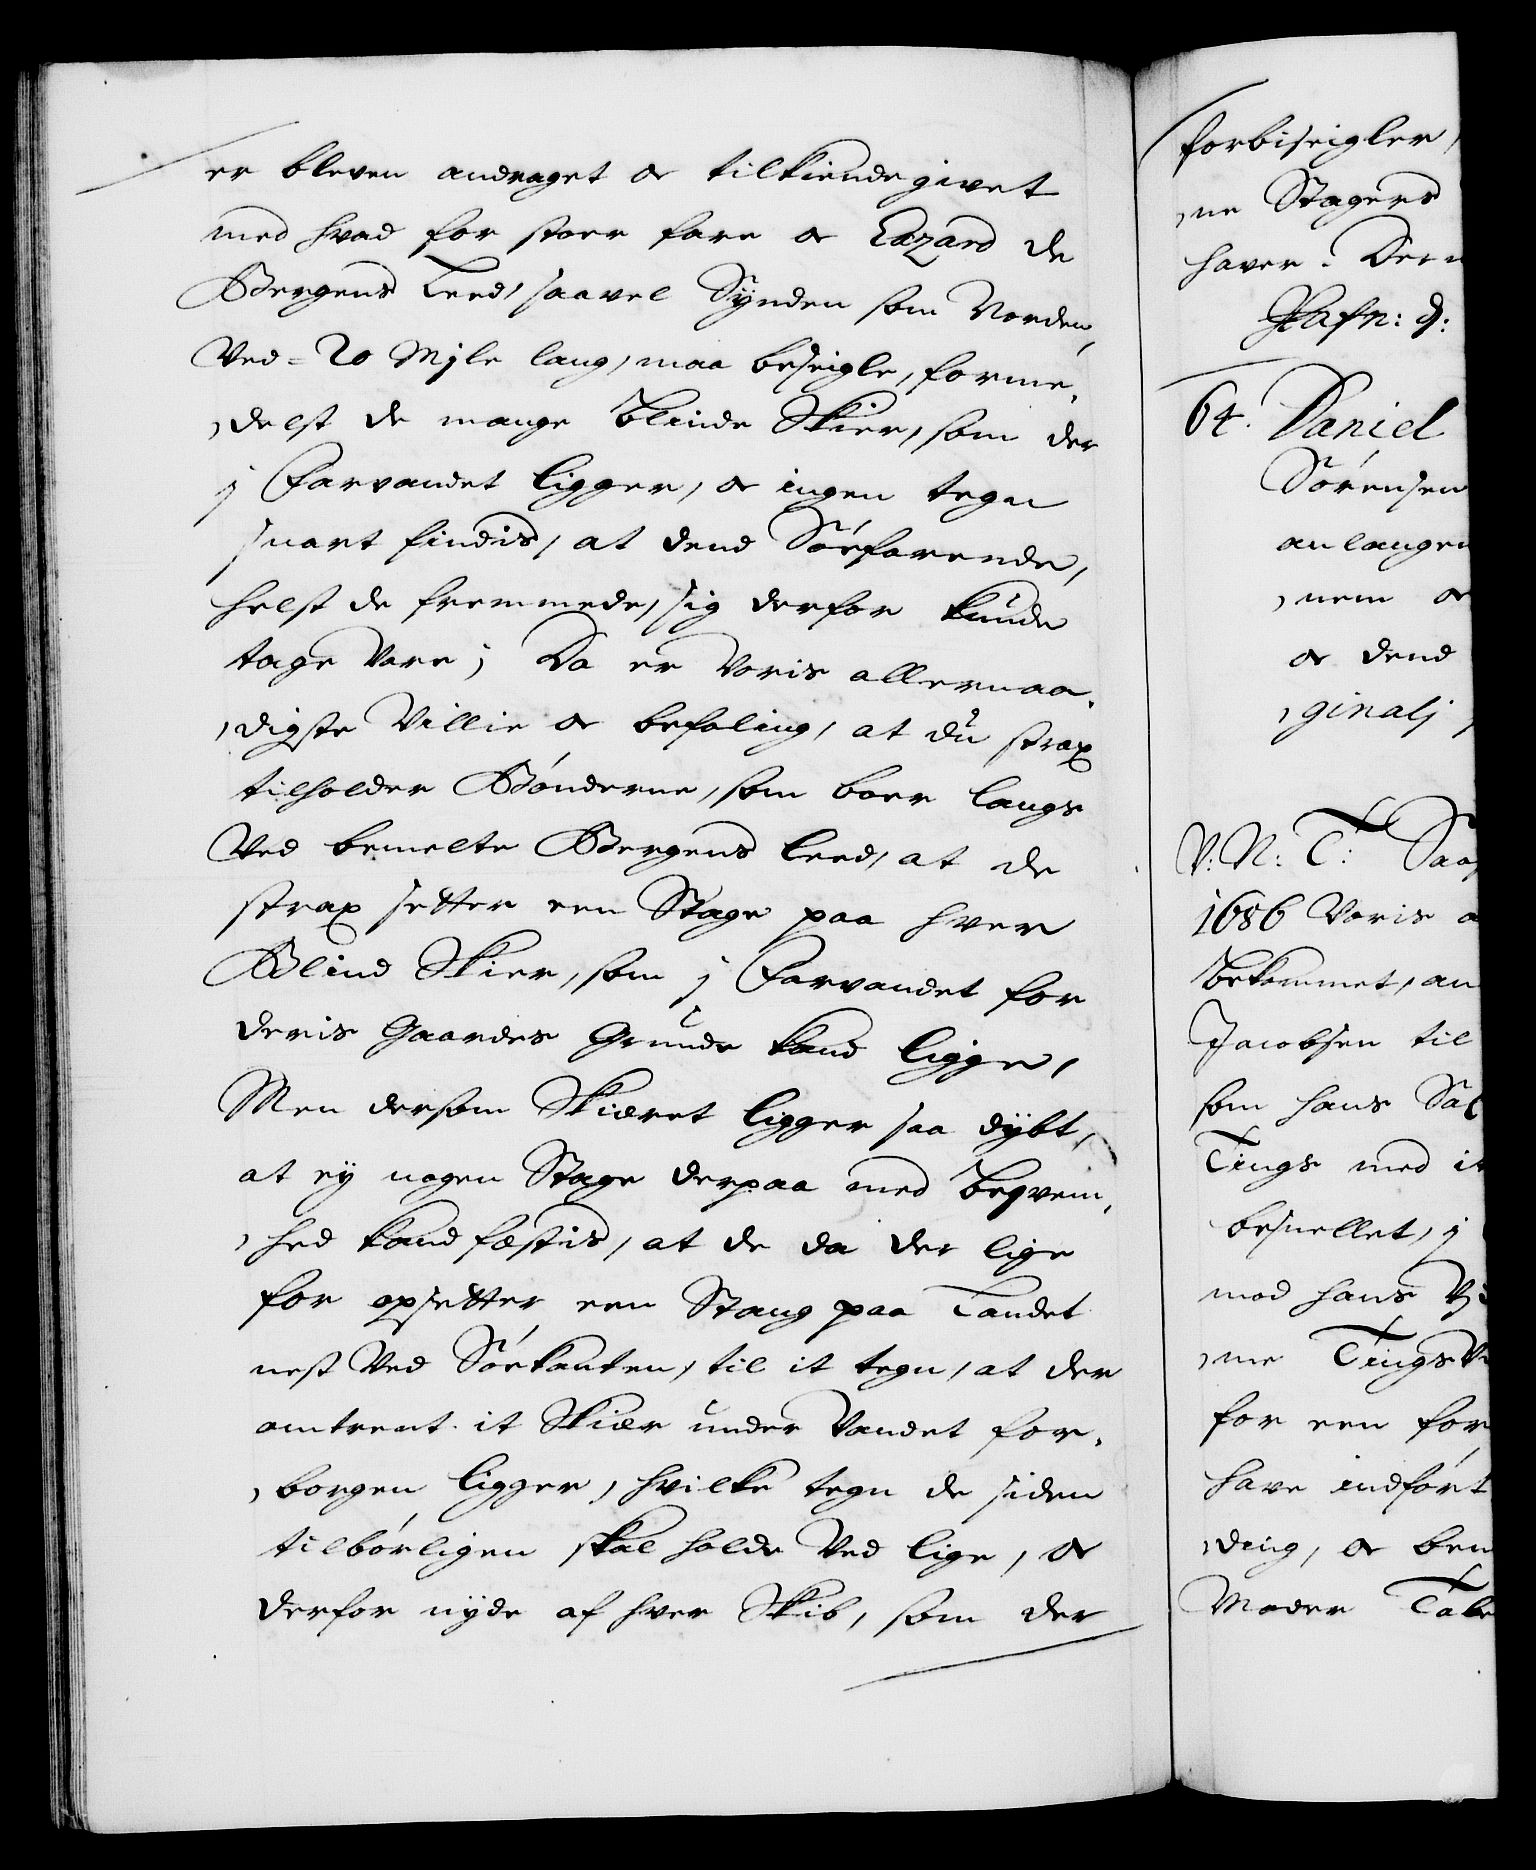 er bleven andraget oc tilkiende givet
med hvad for stoer fare oc Hazard de
Bergens Leed, saavel Synden som Norden,
Ved = 20 Mjle lang, maa beseigle, forme,
,delst de mange Blinde Skier, som der
j Farvandet ligger, oc ingen tegn
snart findis, at dend Söefarende,
helst de fremmede, sig derfor kunde
tage Vare; Da er Voris allernaa,
,digste Villie oc befaling, at du strax
tilholder Bönderne, som boer langs
Ved bemelte Bergens Leed, at de
strax setter een Stage paa hver
Blind Skier, som j Farvandet for
deris Gaardes Grunde kand ligge,
Men dersom Skieret ligger saa dybt,
at ey nogen Stage derpaa med Beqvem,
,hed kand fæstis, at de da der lige
for opsetter een Stang paa Landet
nest Ved Söekanten, til it tegn, at der
omtrent it Skier under Vandet for,
,borgen ligger, hvilke tegn de siden
tilbörligen skal holde Ved lige, oc
derfor nyde af hver Skib, som der
forbiseigler,
,ne Stagers
haver. Der
Hafn: d:
64. Daniel
Sörensen
anlangen
,nem oc
oc dend
,ginalj
V: N: T: Saa
1686 Voris a
Bekommet, an
Jacobsen til
som hans Sal
Tings med it
besnellet, j
mod hans
,me Tings
for een for
have indfört
,ding, oc bem
Moder